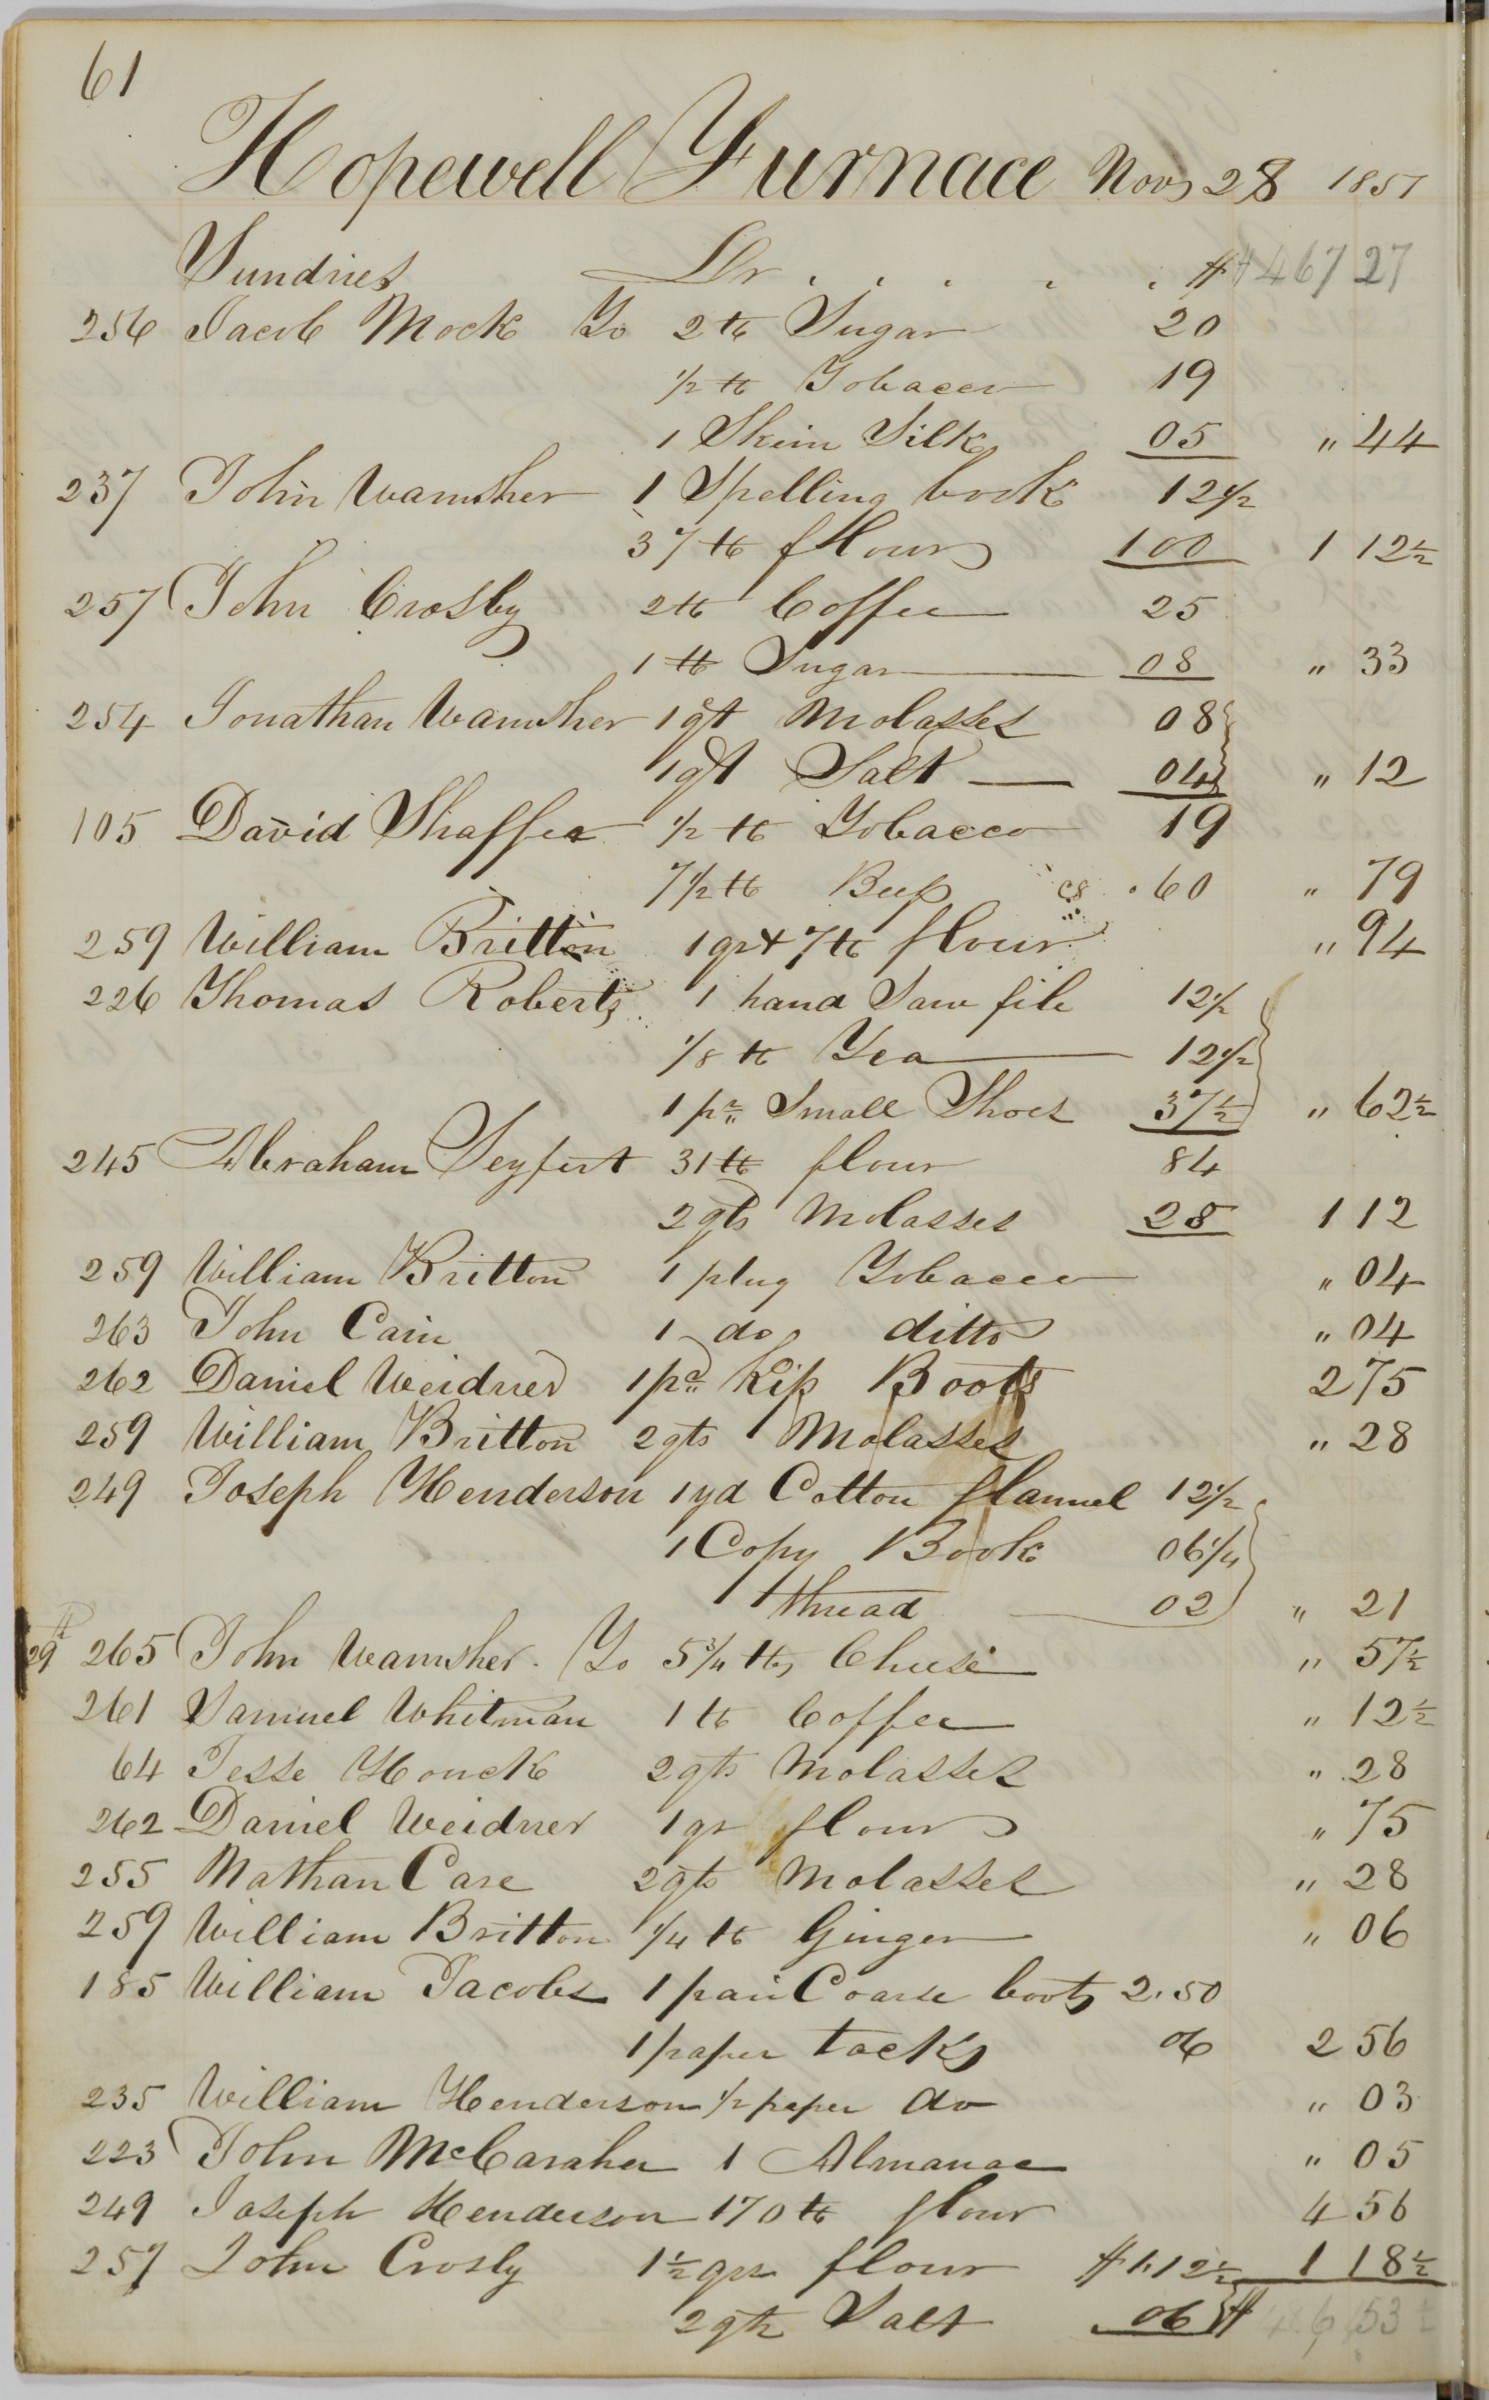 61
Hopewell Furnace Nov 28 1857
Sundries Dr . . . . . $ 467 27
256 Jacob Mock To 2 ℔ Sugar 20
1/2 ℔ Tobacco 19
1 Skein Silk 05 " 44
237 John Wamsher 1 Spelling book 12 1/2
37 ℔ flour 100 1 12 1/2
257 John Crosby 2 ℔ Coffee 25
1 ℔ Sugar 08 " 33
254 Jonathan Wamsher 1 qt Molasses 08
1 qt Salt 04 " 12
105 David Shaffer 1/2 ℔ Tobacco 19
7 1/2 ℔ Beef c8 . 60 " 79
259 William Britton 1 qr & 7 ℔ flour " 94
226 Thomas Roberts 1 hand Saw file 12 1/2
1/8 ℔ Tea 12 1/2
1 pr Small Shoes 37 1/2 " 62 1/2
245 Abraham Seyfert 31 ℔ flour 84
2 qts Molasses 28 1 12
259 William Britton 1 plug Tobacco " 04
263 John Cain 1 do ditto " 04
262 Daniel Weidner 1 pr Kip Boots 2 75
259 William Britton 2 qts Molasses " 28
249 Joseph Henderson 1 yd Cotton flannel 12 1/2
1 Copy Book 06 1/4
thread 02 " 21
29 265 John Wamsher . To 5 3/4 ℔s Cheese " 57 1/2
261 Samuel Whitman 1 ℔ Coffee " 12 1/2
64 Jesse Houck 2 qts Molasses " 28
262 Daniel Weidner 1 qr flour " 75
255 Nathan Care 2 qts Molasses " 28
259 William Britton 1/4 ℔ Ginger " 06
185 William Jacobs 1 pair Coarse boots 2.50
1 paper tacks 06 2 56
235 William Henderson 1/2 paper do " 03
223 John McCaraher 1 Almanac " 05
249 Joseph Henderson 170 ℔ flour 4 56
257 John Crosby 1 1/2 qrs flour $ 1.12 1/2 1 18 1/2
2 qts Salt 06 $ 486 53